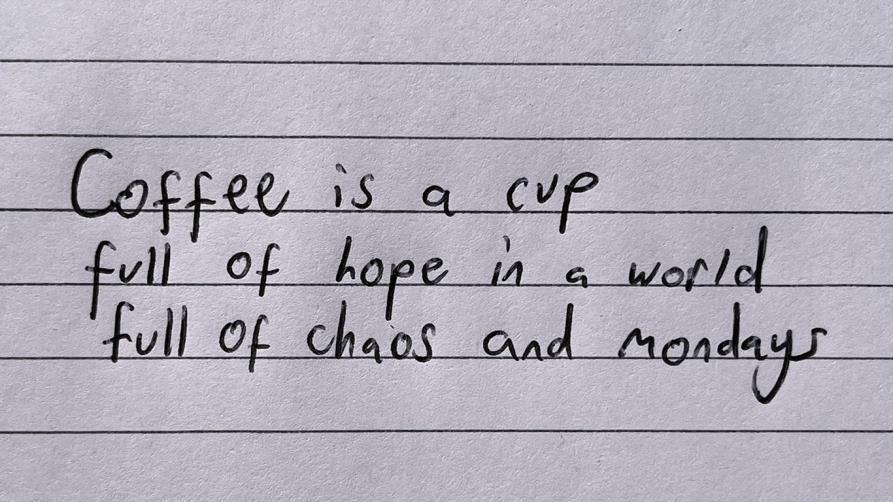 Coffee is a cup
full of hope in a world
full of chaos and mondays